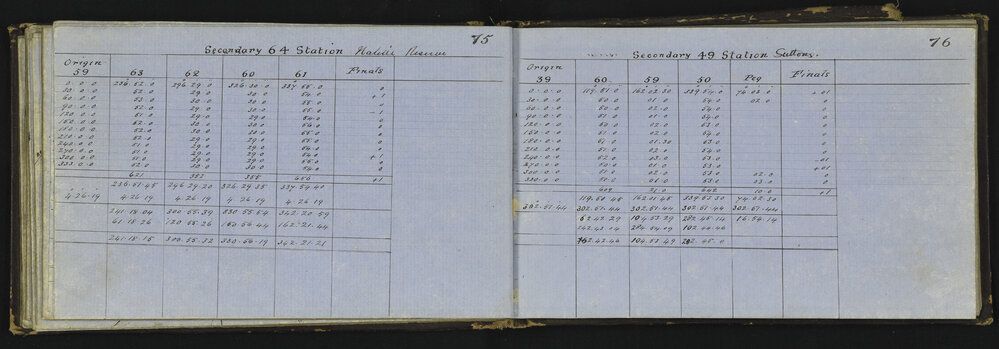 75
Secondary 64 Station Native Reserve
Origin
59 63 62 60 61 Finals
0.0.0 236.52.0 296.29.0 326.30.0 337.55.0 0
30.0.0 52.0 29.0 30.0 54.0 +1
60.0.0 53.0 30.0 30.0 55.0 0
90.0.0 52.0 29.0 30.0 55.0 -1
120.0.0 51.0 29.0 29.0 54.0 0
150.0.0 52.0 30.0 30.0 54.0 0
180.0.0 52.0 30.0 30.0 55.0 0
210.0.0 52.0 29.0 29.0 55.0 0
240.0.0 51.0 29.0 29.0 54.0 0
270.0.0 51.0 29.0 29.0 54.0 +1
300.0.0 51.0 29.0 29.0 55.0 0
333.0.0 52.0 30.0 30.0 54.0 0
621 352 355 656 +1
236.51.45 296.29.20 326.29.35 337.54.40
4.26.19 4.26.19 4.26.19 4.26.19 4.26.19
241.18.04 300.55.39 330.55.54 342.20.59
61.18.26 120.55.26 150.56.44 162.21.44
241.18.15 300.55.32 330.56.19 342.21.21
76
Secondary 49 Station Suttons.
Origin
39 60 59 50 Peg Finals
0.0.0 119.51.0 162.02.30 339.54.0 74.03.0 +01
30.0.0 50.0 01.0 54.0 02.0 0
60.0.0 50.0 02.0 54.0 0
90.0.0 51.0 01.0 53.0 0
120.0.0 50.0 02.0 03.0 0
150.0.0 51.0 02.0 54.0 0
180.0.0 51.0 01.30 53.0 0
210.0.0 51.0 02.0 54.0 0
240.0.0 52.0 03.0 53.0 -01
270.0.0 50.0 01.0 53.0 +01
300.0.0 51.0 02.0 53.0 02.0 0
330.0.0 51.0 01.0 53.0 03.0 0
609 21.0 642 10.0 +1
119.50.45 162.01.45 339.53.30 74.02.30
302.51.44 302.51.44 302.51.44 302.51.44 302.51.44
62.42.29 104.53.29 282.45.14 16.54.14
242.43.04 284.54.09 102.44.46
242.42.46 104.53.49 282.45.0